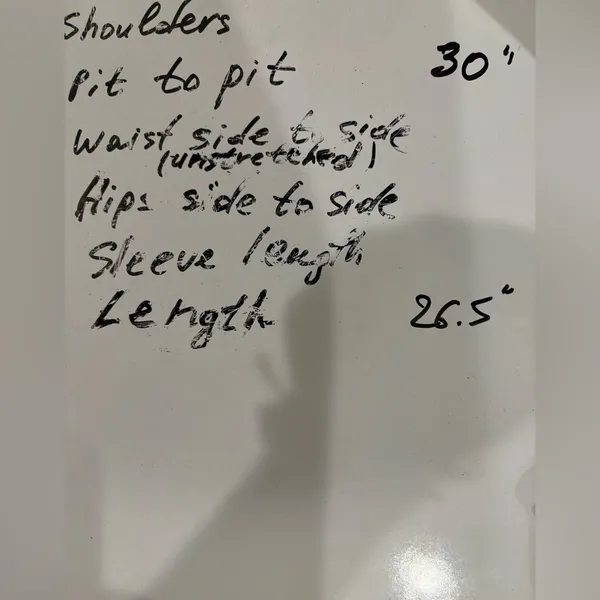 Shoulders
Pit to pit 30"
Waist side to side
(unstretched)
Hips side to side
Sleeve length
Length 26.5"